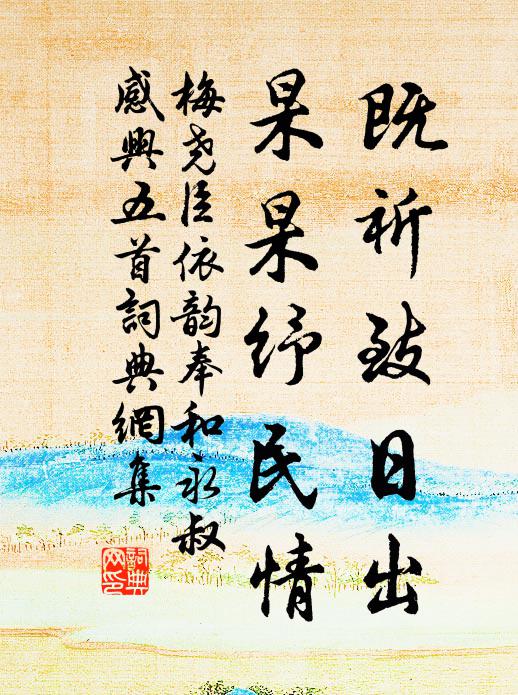 既祈致日出
杲杲纾民情
梅尧臣依韵奉和永叔
感興五首詞典網集
詞典
网印